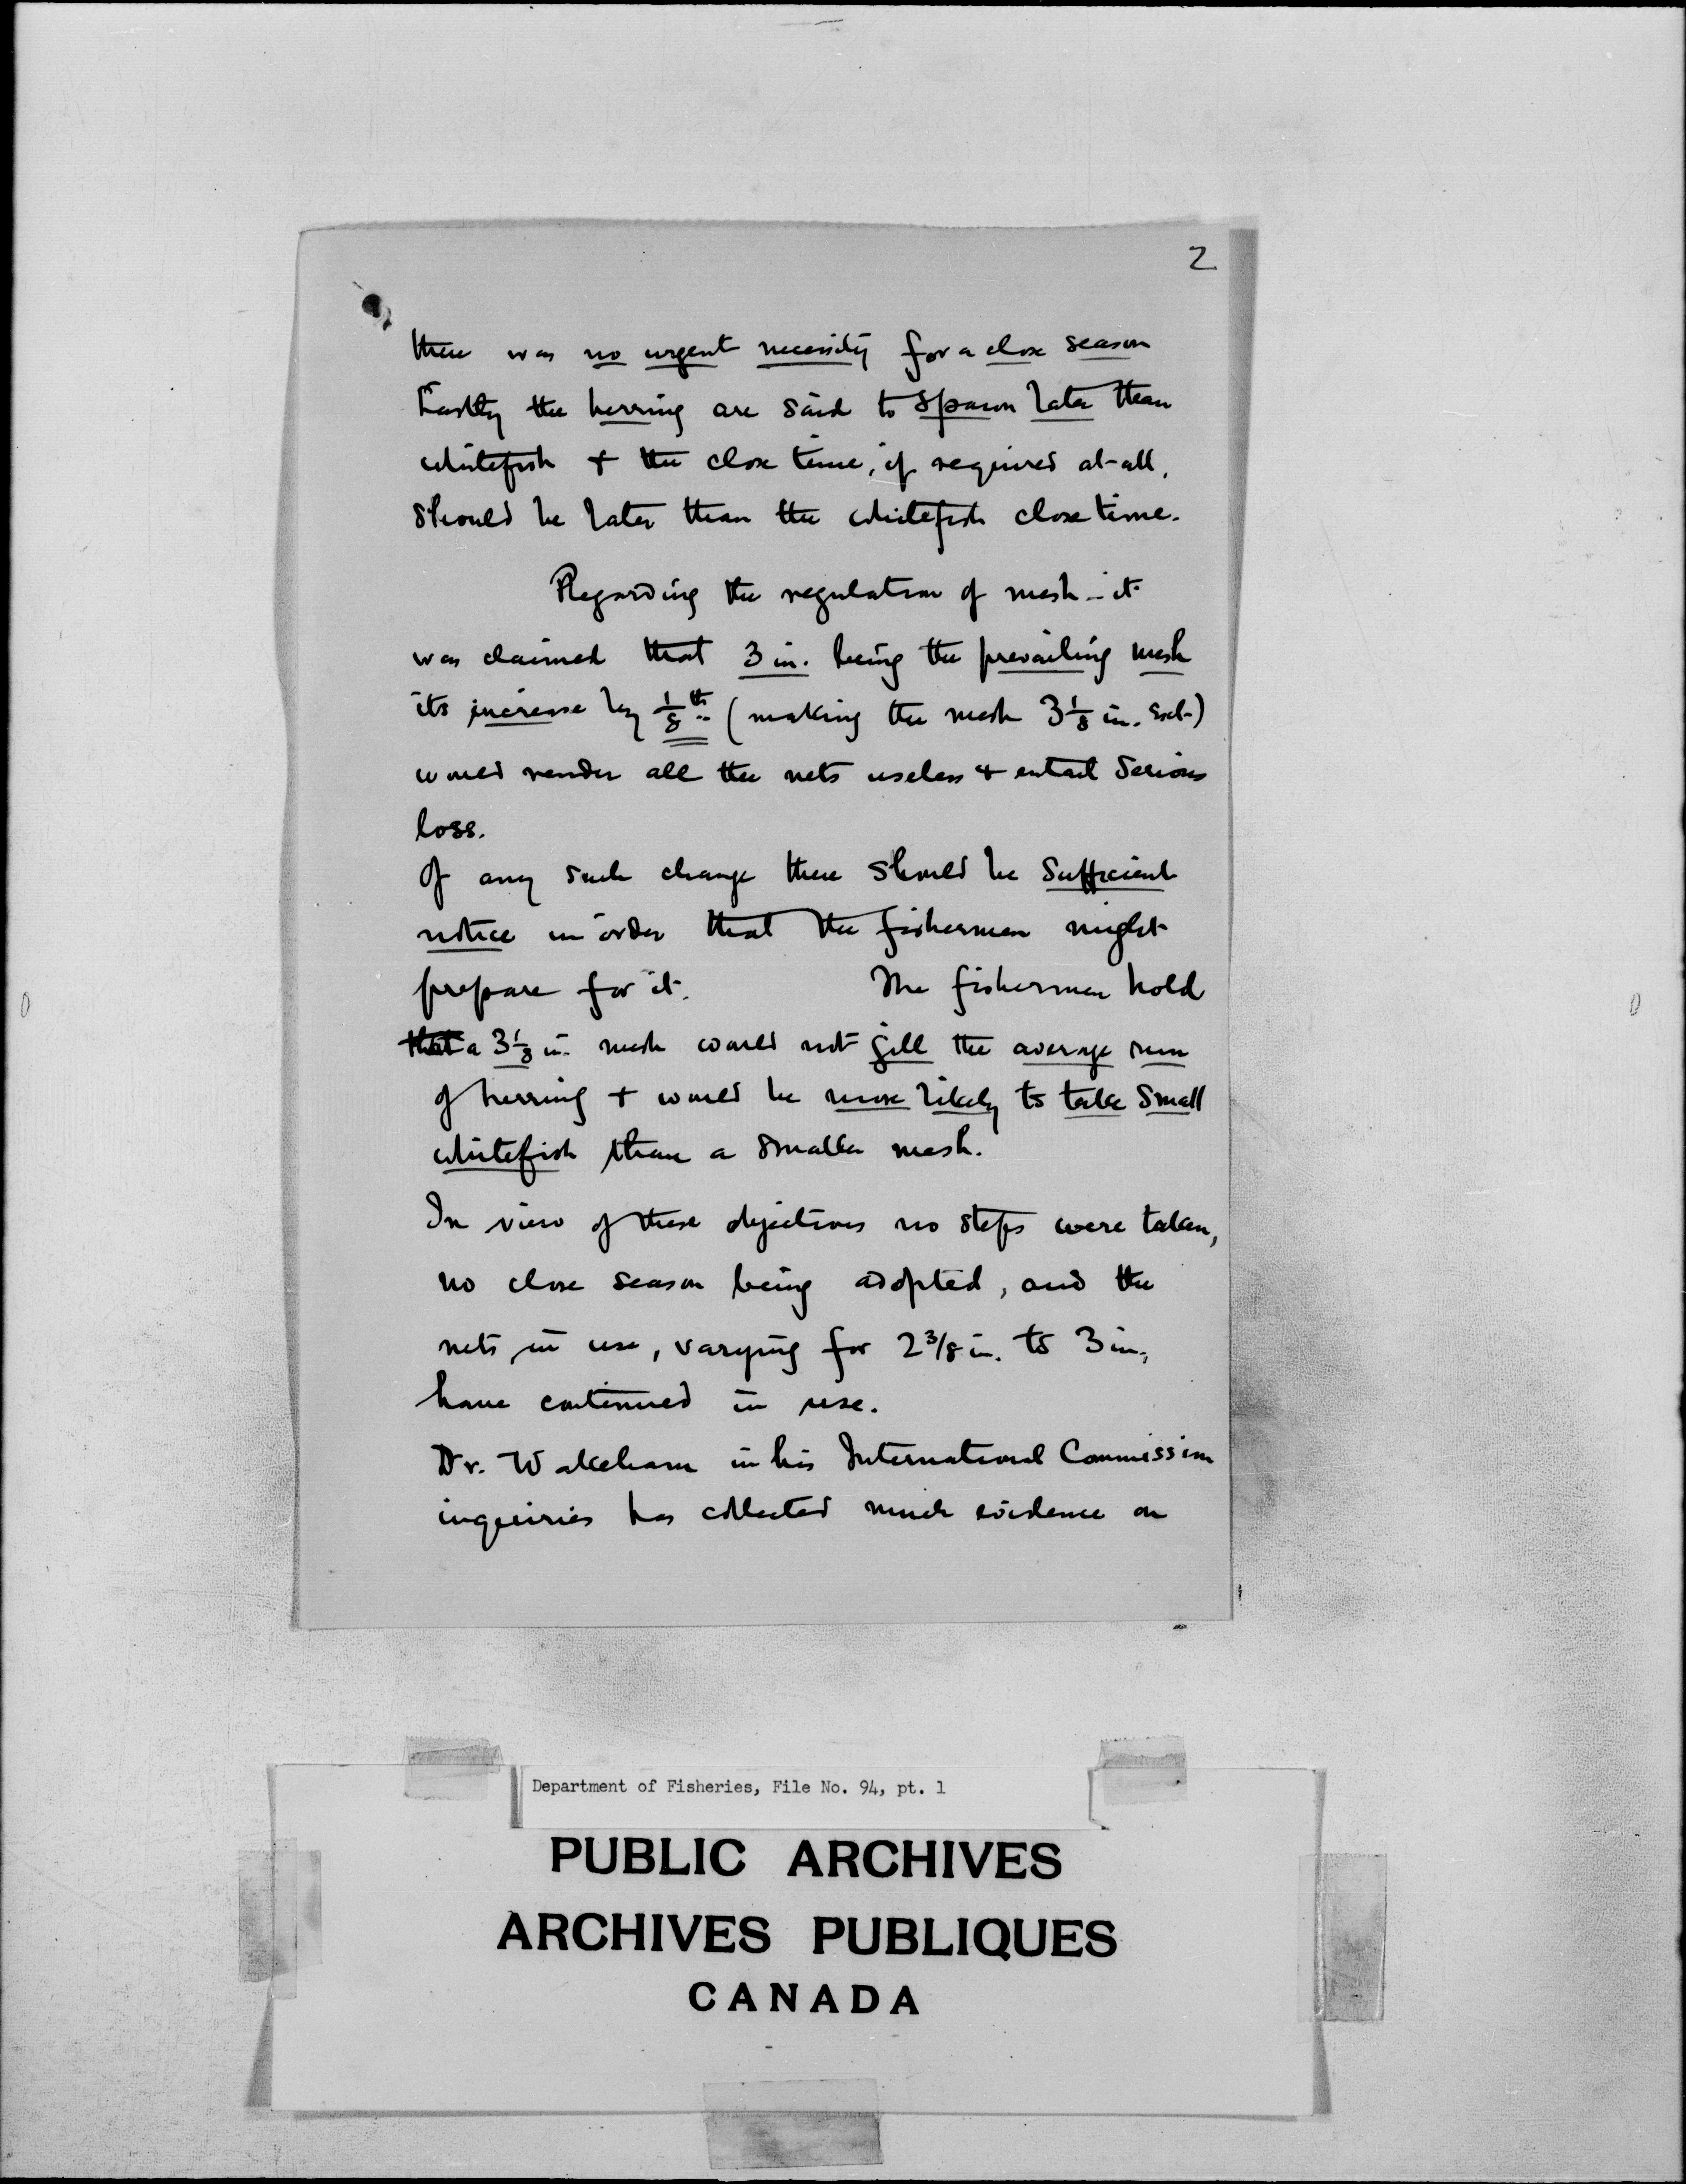 2
there was no urgent necessity for a close season
Lastly the herring are said to spawn later than
whitefish + the close time, if required at all,
should be later than the whitefish close time.
Regarding the regulation of mesh - it
was claimed that 3 in. being the prevailing mesh
its increase by 1/8th (making the mesh 3 1/8 in. ext.)
would render all the nets useless + entail serious
loss.
Of any such change there should be sufficient
notice in order that the fishermen might
prepare for it. The fishermen hold
that a 3 1/8 in. mesh would not gill the average run
of herring + would be more likely to take small
whitefish than a smaller mesh.
In view of these objections no steps were taken,
no close season being adopted, and the
nets in use, varying for 2 3/8 in. to 3 in,
have continued in use.
Dr. Wakeham in his International Commission
inquiries has collected much evidence on
Department of Fisheries, File No. 94, pt. 1
PUBLIC ARCHIVES
ARCHIVES PUBLIQUES
CANADA